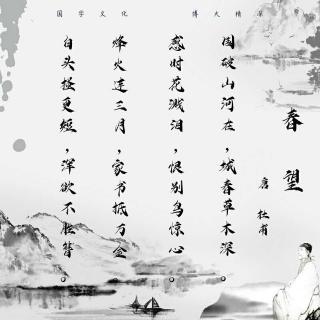 国学文化 博大精深
春望
唐 杜甫
国破山河在，城春草木深。
感时花溅泪，恨别鸟惊心。
烽火连三月，家书抵万金。
白头搔更短，浑欲不胜簪。